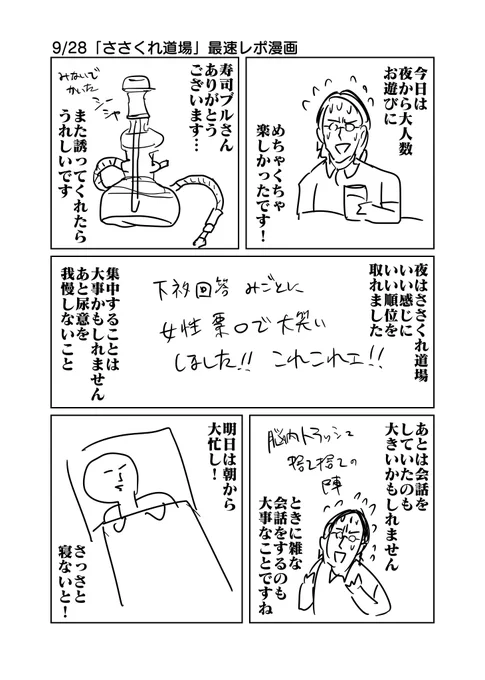 9/28「ささくれ道場」最速レポ漫画
今日は
夜から大人数
お遊びに
めちゃくちゃ
楽しかったです!
寿司ブルさん
ありがとう
ございます…
みないで
かいた
シーシャ
また誘ってくれたら
うれしいです
夜はささくれ道場
いい感じに
いい順位を
取れました
下ネタ回答 みごとに
女性票0で大笑い
しました!! これこれェ!!
集中することは
大事かもしれません
あと尿意を
我慢しないこと
あとは会話を
していたのも
大きいかもしれません
脳内トラッシュ
捨て捨ての
陣
ときに雑な
会話をするのも
大事なことですね
明日は朝から
大忙し!
さっさと
寝ないと!